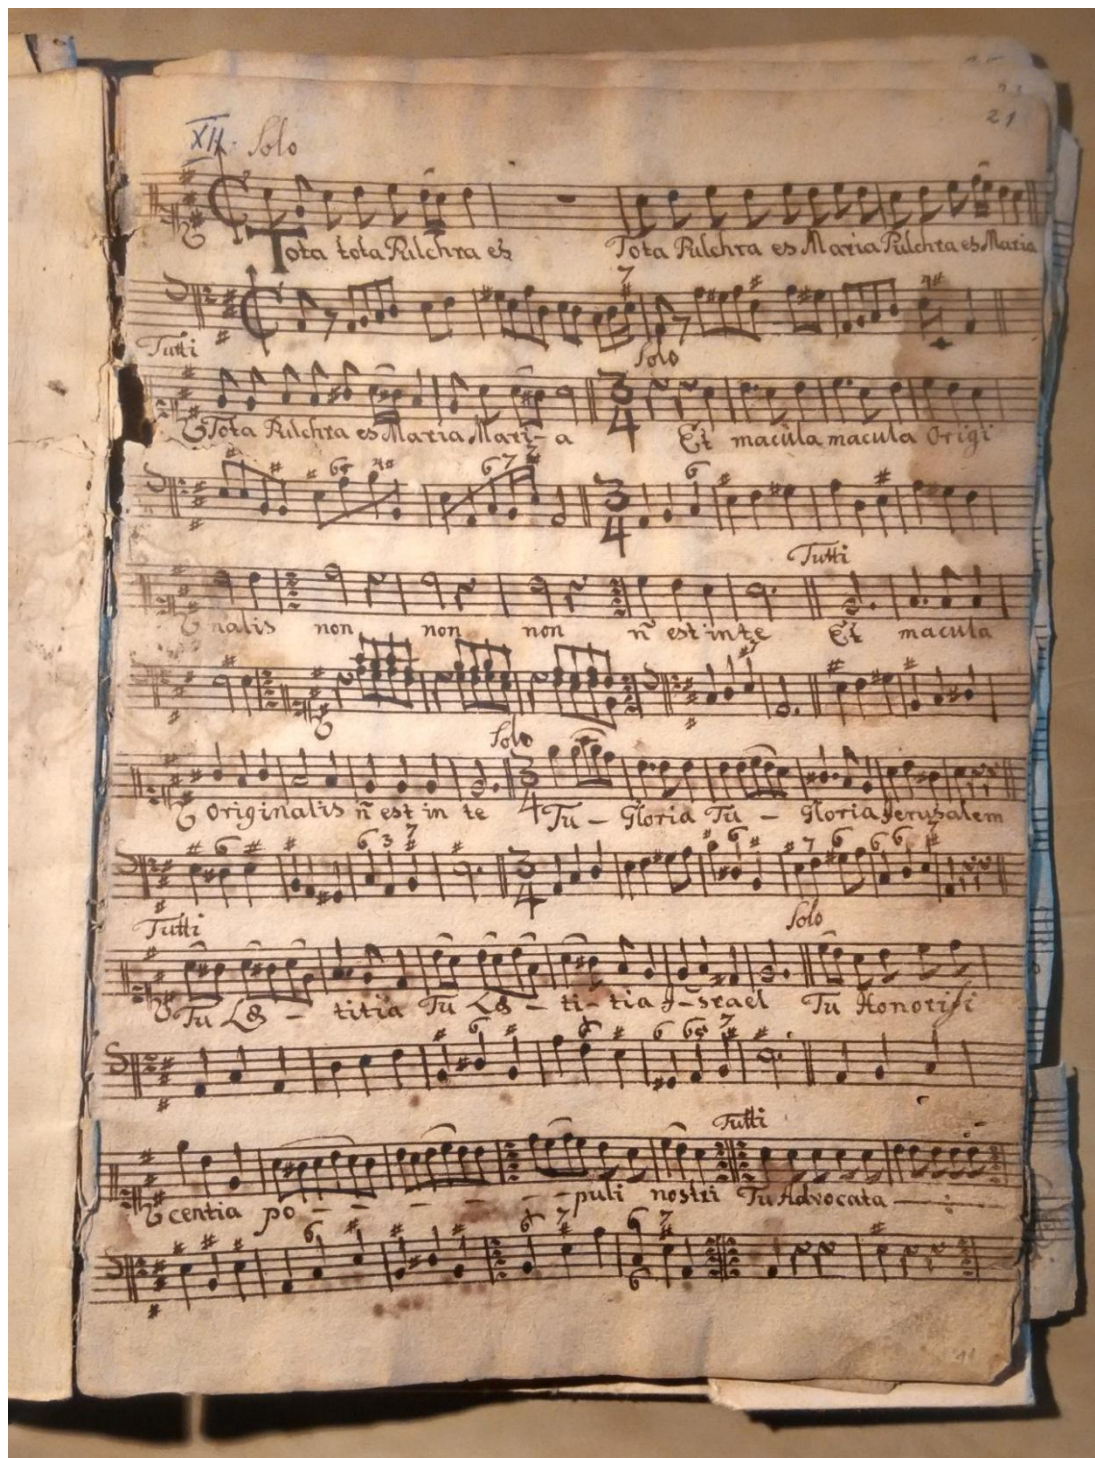 21
XII. Solo
Tota tota Pulchra es Tota Pulchra es Maria Pulchra es Maria
7
4#
Tutti Solo
3 4
Tota Pulchra es Maria Mari-a Et macula macula Origi
3 4
Tutti
nalis non non non ñ est in te Et macula
Solo
3 4
Originalis ñ est in te Tu - Gloria Tu - Gloria Jerusalem
6 6 3 7
3 4
Tutti Solo
Tu Læ - titia Tu Læ - ti- tia I-srael Tu Honorifi
Tutti
centia po - - - - - puli nostri Tu Advocata